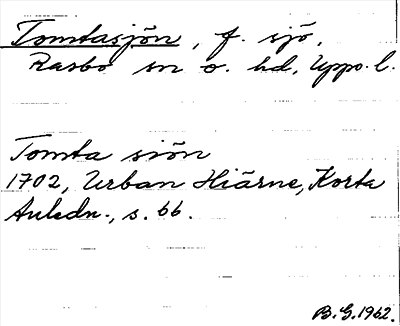 Tomtasjön, f. sjö,
Rasbo sn o. hd, Upps. l.
Tomta siön
1702, Urban Hiärne, Korta
Anledn., s. 66.
B.G. 1962.